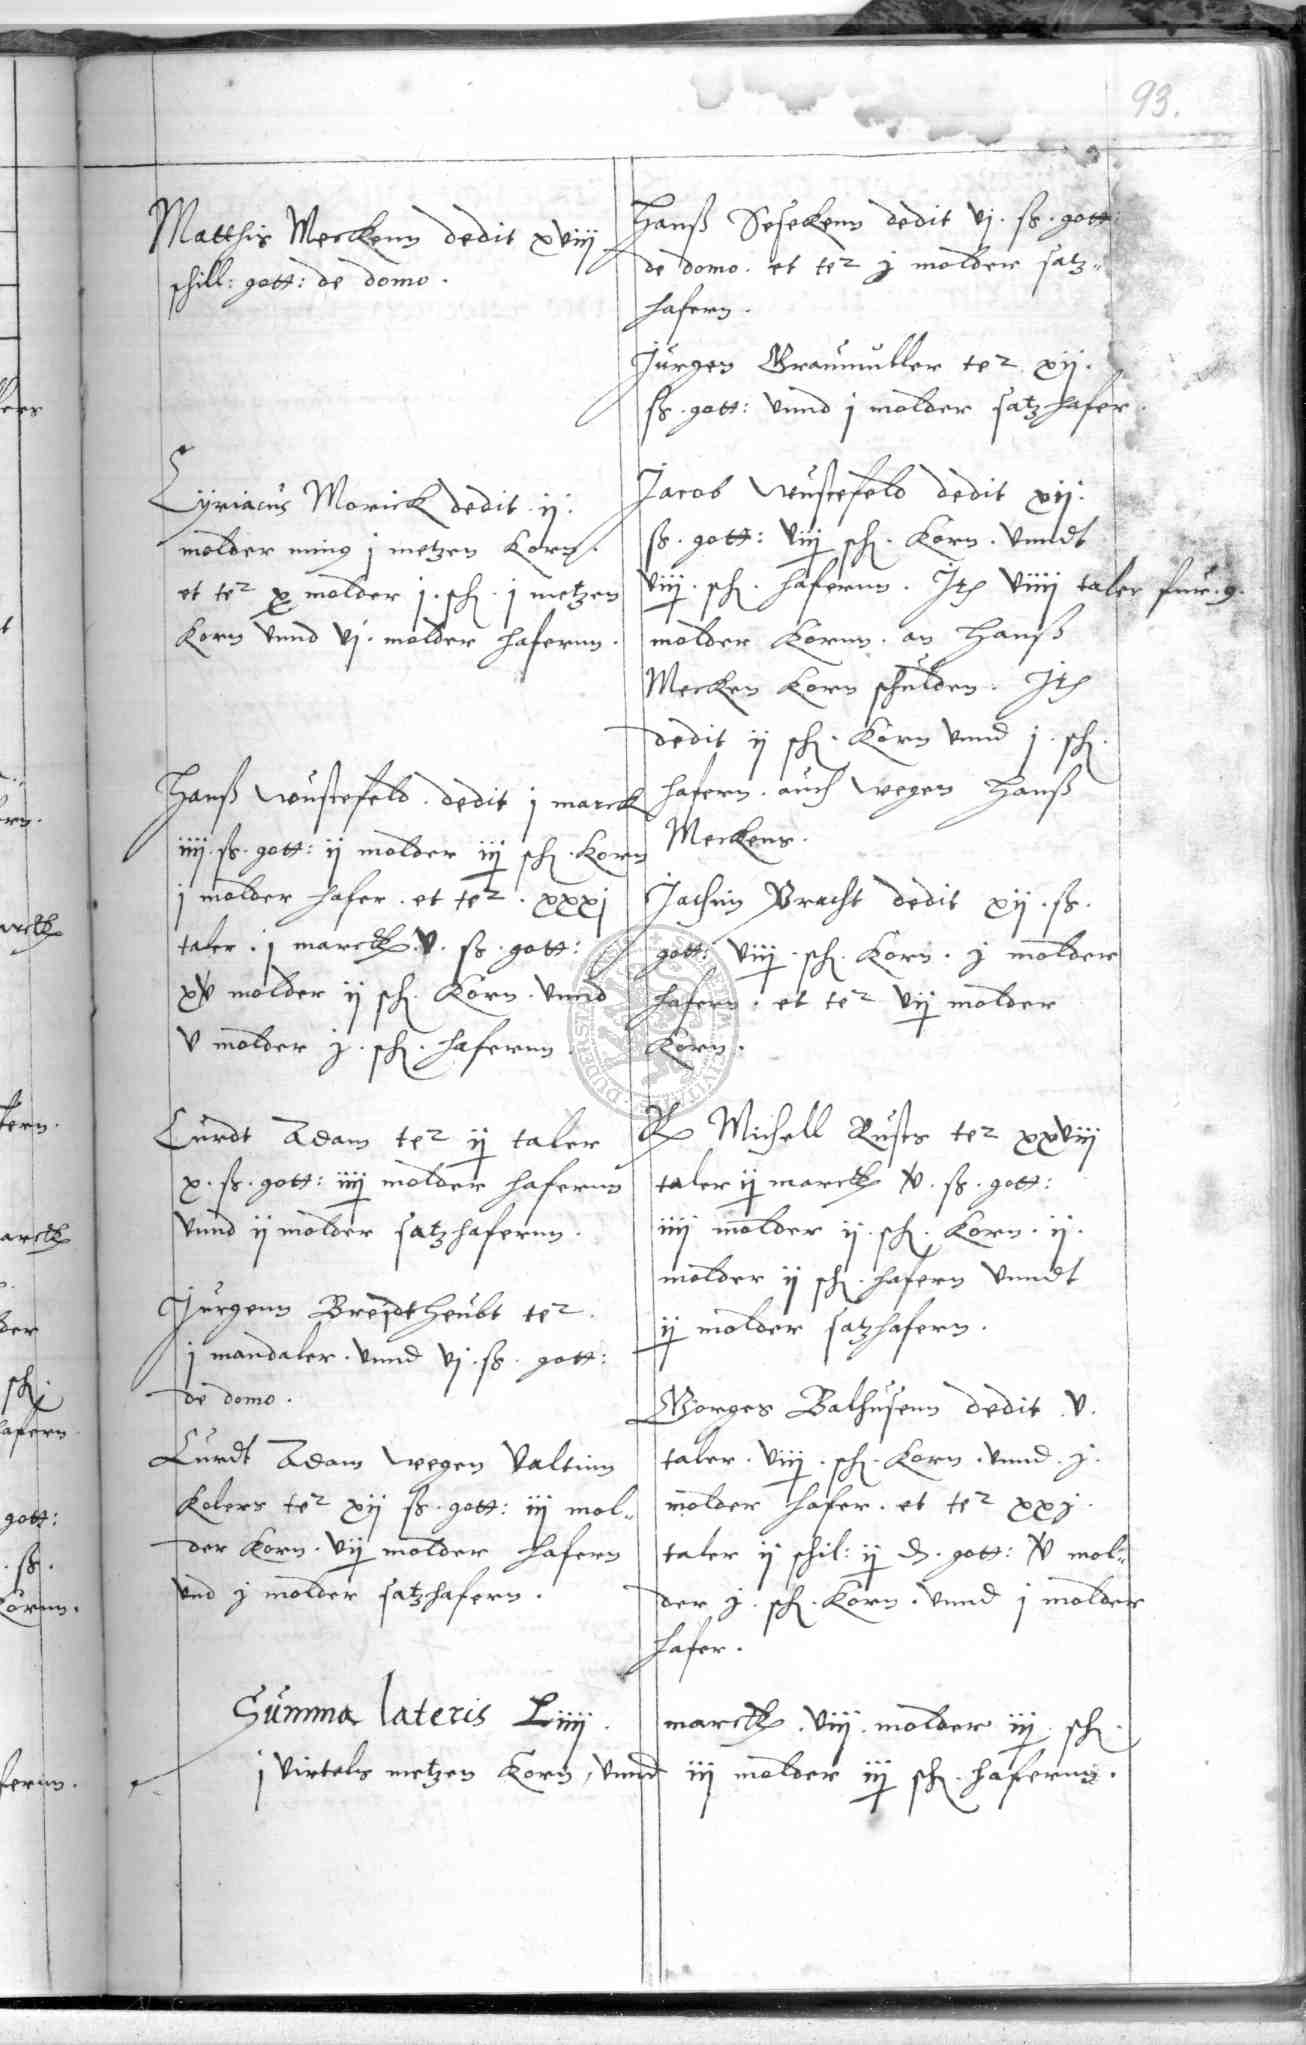 93.
Matthis Meckenn dedit xviij
schill: gott: de domo.
Cÿriacus Morick dedit ij
molder ming j metzen Korn.
et ter x molder j. sch. j metzen
Korn vnnd vj. molder hafernn.
Hanß Wustefeld. dedit j marck
iiij. ß. gott: ij molder iij sch. Korn
j molder hafer. et ter. xxxj
taler. j marck. v. ß gott:
xv molder ij sch. Korn. vnnd
v molder j. sch. hafernn.
Curdt Adam ter ij taler
x. ß. gott: iiij molder hafernn
vnnd ij molder satzhafernn.
Jurgenn Breidtheubt ter
j mandaler. vnnd vj. ß. gott:
de domo.
Curdt Adam wegen Valtinn
Kolers ter xij ß. gott: iij mol-
der Korn. vij molder hafern
vnd j molder satzhafern.
Hanß Sesekenn dedit vj. ß. gott:
de domo. et ter j molder satz-
hafern.
Jurgen Graumuller ter xij.
ß. gott: vnnd j molder satzhafer.
Jacob Wustefeld dedit xij.
ß. gott: viij sch. Korn. vnndt
viij. sch. hafernn. Jtem viiij taler fur. 9.
molder Kornn. an Hanß
Mecken Korn schulden. Jtem
dedit ij sch. Korn vnnd j. sch.
hafern. auch wegen Hanß
Meckens.
Jachim Bracht dedit xij. ß.
gott: viij. sch. Korn. j molder
hafern. et ter vij molder
Korn.
Michell Rusts ter xxviij
taler ij marck v. ß. gott:
iiij molder ij. sch. Korn. ij.
molder ij sch. hafern vnndt
ij molder satzhafern.
Gorges Balhusenn dedit v.
taler. viij. sch. Korn. vnnd j.
molder hafer. et ter xxj.
taler ij schil: ij d. gott: v mol-
der j. sch. Korn. vnnd j molder
hafer.
Summa lateris Liiij. marck. viij. molder iij sch.
j virtels metzen Korn, vnnd iij molder iij sch. hafernn.